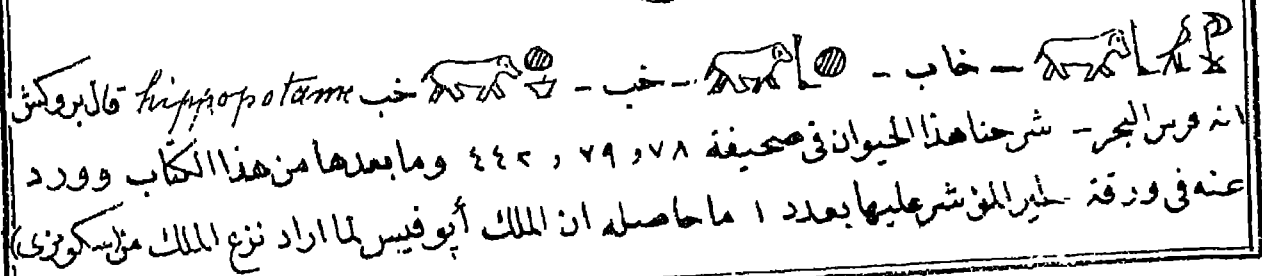 – خاب – – خب – خب hippopotame قال بروكش
انه فرس البحر – شرحنا هذا الحيوان فى صحيفة ٧٨ و ٧٩ و ٤٤٢ وما بعدها من هذا الكتاب وورد
عنه فى ورقة المؤشر عليها بعدد ١ ما حاصله ان الملك أپوفيس لما اراد نزع الملك من